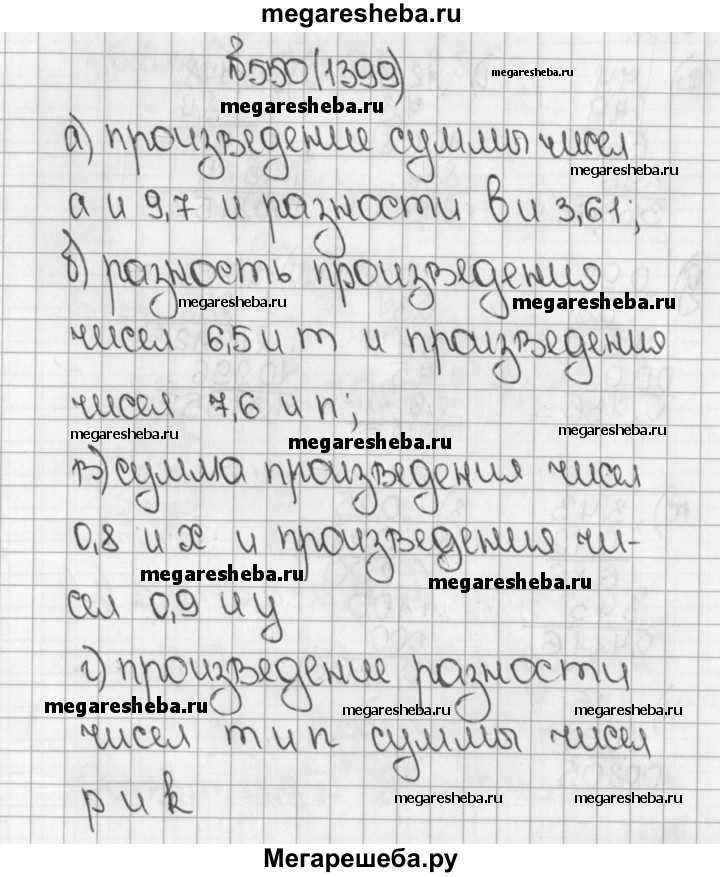 megaresheba.ru
№550(1399)
megaresheba.ru
megaresheba.ru
а) произведение суммы чисел
megaresheba.ru
а и 9,7 и разности в и 3,61;
б) разность произведения
megaresheba.ru
megaresheba.ru
чисел 6,5 и m и произведения
чисел 7,6 и n;
megaresheba.ru
megaresheba.ru
megaresheba.ru
в) сумма произведения чисел
0,8 и х и произведения чи-
megaresheba.ru
megaresheba.ru
сел 0,9 и у
г) произведение разности
megaresheba.ru
megaresheba.ru
megaresheba.ru
чисел m и n суммы чисел
р и k
megaresheba.ru
megaresheba.ru
Мегарешеба.ру